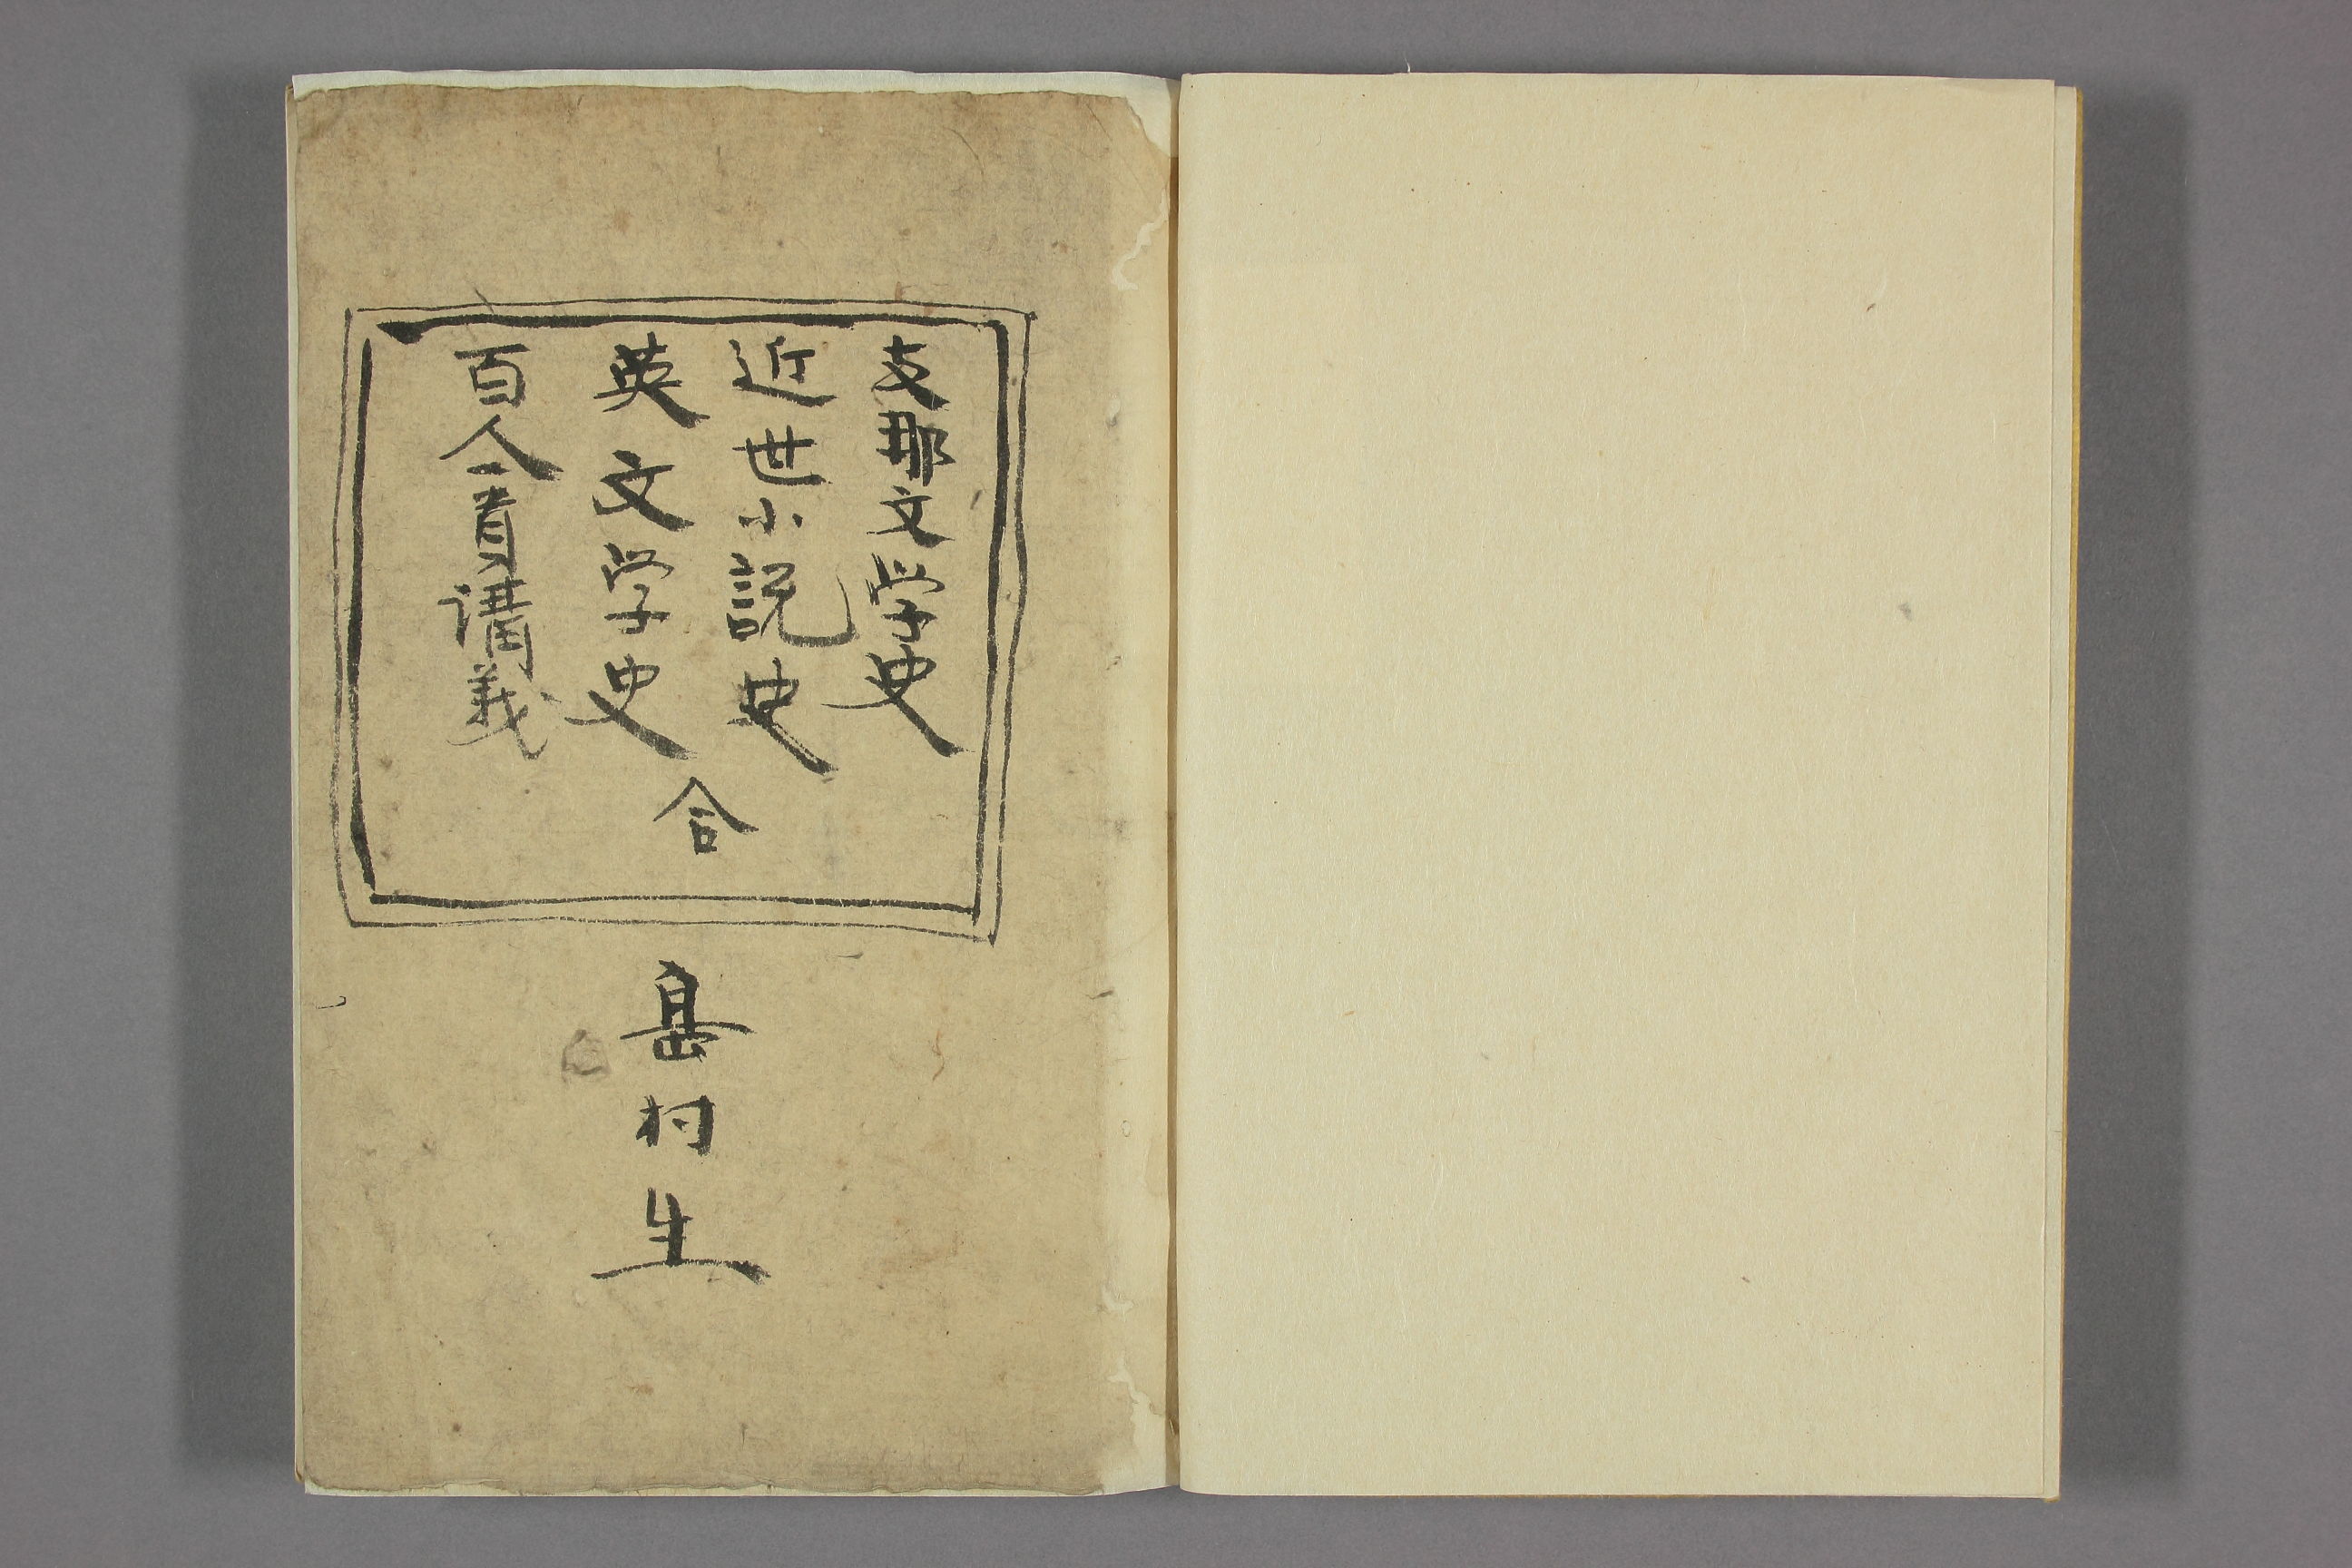 支那文学史
近世小説史
英文学史
百人一首講義
合
岳村生